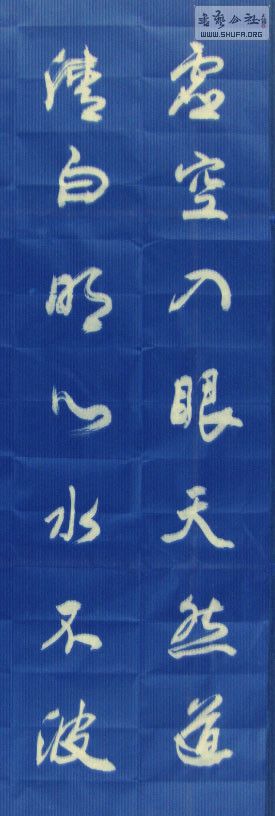 虚空入眼天然道
清白明心水不波
书艺公社
WWW.SHUFA.ORG